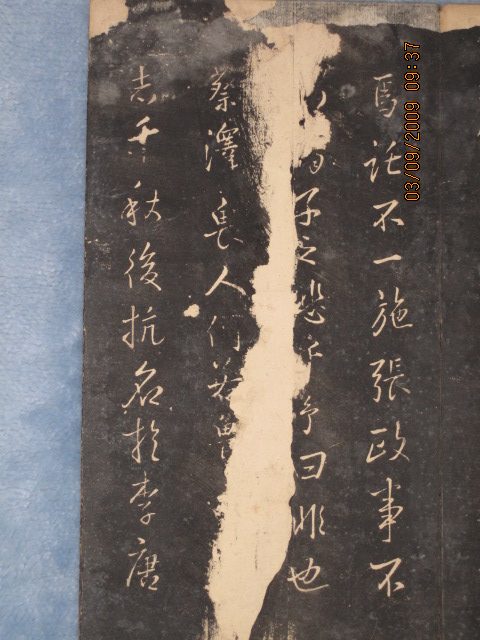 焉託不一施張政事不
子之悲乎予曰非也
蔡澤長人
志千秋後抗名於李唐
03/09/2009 09:37